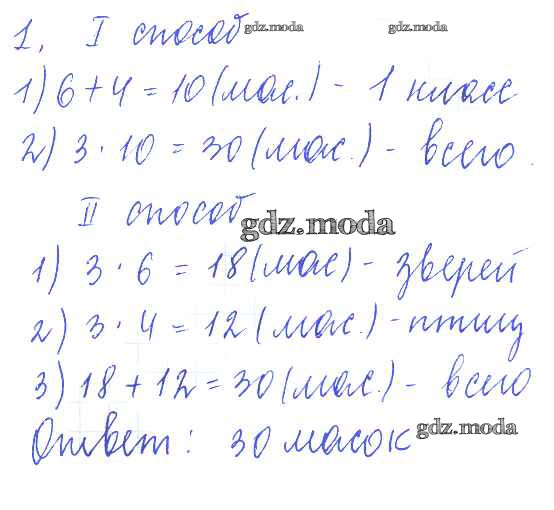 1. I способ gdz.moda gdz.moda
1) 6 + 4 = 10 (мас.) - 1 класс
2) 3 · 10 = 30 (мас.) - всего.
II способ
gdz.moda
1) 3 · 6 = 18 (мас) - зверей
2) 3 · 4 = 12 (мас.) - птиц
3) 18 + 12 = 30 (мас.) - всего
Ответ: 30 масок gdz.moda